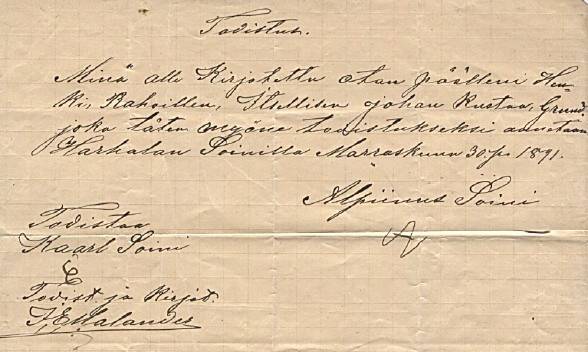 Todistus.
Minä alle Kirjotettu otan päälleni Hen-
ki, Rahoillen, Itsellisen Johan Kustaa, Grund,
joka täten myöne todistukseksi annetaan
Harhalan Soinilla Marraskuun 30 p. 1891.
Alpiinus Soini
Todistaa
Kaarl Soini
Todist. ja Kirjot.